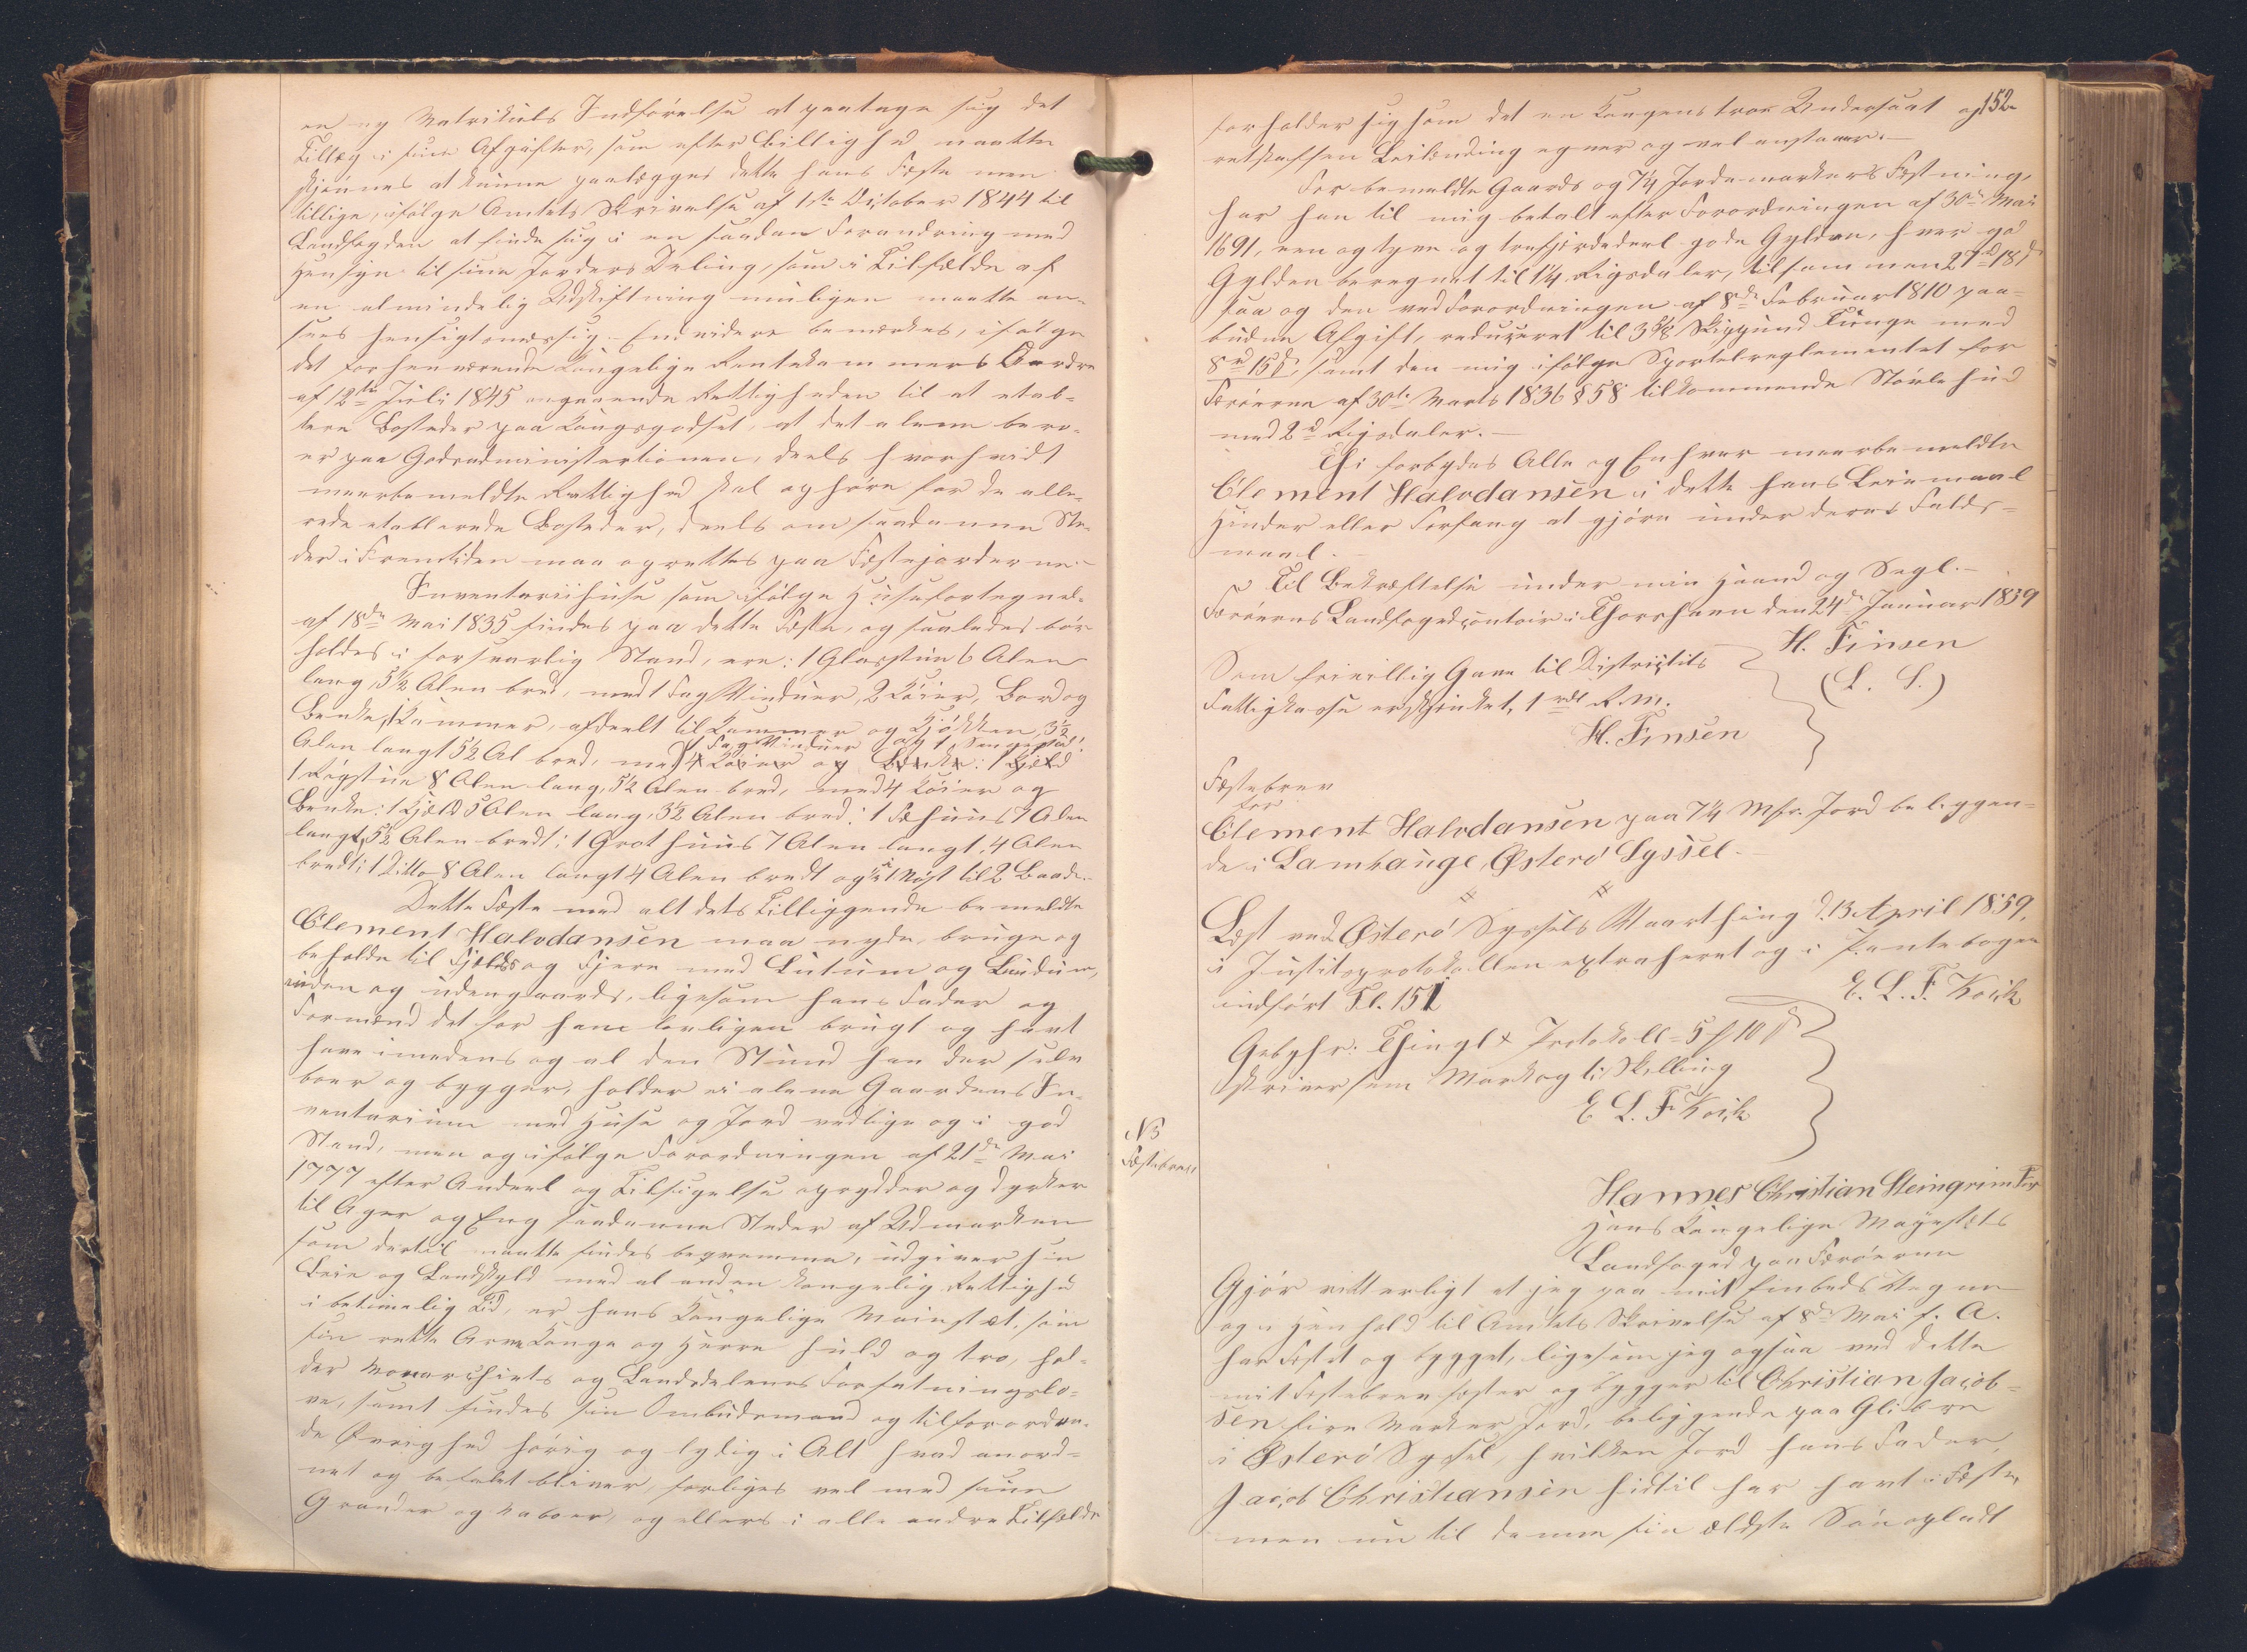 en ny Matrikuls Indførelse at paatage sig det
Tillæg i sine Afgifter, som efter Billighed maatte
skjønnes at kunne paalægges dette hans Fæste men
tillige, ifølge Amtets Skrivelse af 1ste October 1844 til
Landfogden at finde sig i en saadan Forandring med
Hensyn til sine Jorders Deling, som i Tilfælde af
en almindelig Udskiftning muligen maatte an-
sees hensigtsmæssig. Endvidere bemærkes, ifølge
det forhenværende Kongelige Rentekammers Ordre
af 12te Juli 1845 angaaende Rettigheden til at etab-
lere Bosteder paa Kongsgodset, at det alene bero-
er paa Godsadministrationen, deels hvorvidt
meerbemeldte Rettighed skal ophøre for de alle-
rede etablerede Bosteder, deels om saadanne Ste-
der i Fremtiden maa oprettes paa Fæstejorderne.-
Inventariihuse som ifølge Huusefortegnel-
af 18de Mai 1835 findes paa dette Fæste, og saaledes bør
holdes i forsvarlig Stand, ere: 1 Glasstue 6 Alen
lang, 5½ Alen bred, med 1 Fag Vinduer, 2 Køier, Bord og
Benke, 1 Kammer, afdeelt til Kammer og Kjøkken, 3½
Alen langt 5½ Al bred, med 1 Fag Vinduer og 1 Sengested:
1 Røgstue 8 Alen lang, 5½ Alen bred, med 4 Køier og
Benke: 1 Hjeld 5 Alen lang, 3½ Alen bred: 1 Fæhuus 7 Alen
langt, 5½ Alen bredt: 1 Grothuus 7 Alen langt, 4 Alen
bredt: 1 Ditto 8 Alen langt 4 Alen bredt og 1 Nøst til 2 Baade.-
Dette Fæste med alt dets Tilliggende bemeldte
Clement Halvdansen maa nyde, bruge og
beholde til Fjelds og Fjere med Lutum og Lundum,
inden og udengaards, ligesom hans Fader og
Formænd det før ham lovligen brugt og havt
have imedens og al den Stund han der selv
boer og bygger, holder ei alene Gaardens In-
ventarium med Huse og Jord vedlige og i god
Stand, men og ifølge Forordningen af 21de Mai
1777 efter Andeel og Tilsigelse oprydder og dyrker
til Ager og Eng saadanne Steder af Udmarken
som dertil maatte findes beqvemme, udgiver sin
Leie og Landskyld med al anden kongelig Rettighed
i betimelig Tid, er hans Kongelige Maiestæt, som
sin rette Arve Konge og Herre huld og tro, hol-
der Monarchiets og Landsdelenes Forfatningslo-
ve, samt findes sin Ombudsmand og tilforordne-
de Øvrighed hørig og lydig i Alt hvad anord-
net og befalet bliver, forliges vel med sine
Grander og Naboer, og ellers i alle andre Tilfælde
152.
forholder sig som det en Kongens troe Undersaat og
retskaffen Leilending egner og vel anstaaer.-
For bemeldte Gaards og 7¼ Jordemarkers Fæstning,
har han til mig betalt efter Forordningen af 30te Mai
1691, een og tyve og trefjerdedeel gode Gylden, hver god
Gylden beregnet til 1¼ Rigsdaler, tilsammen 27rd 18s
saa og den ved Forordningen af 8de Februar 1810 paa-
budne Afgift, reduceret til 3⅝ Skippund Tunge med
8rd 15s, samt den mig ifølge Sportelreglementet for
Færøerne af 30te Marts 1836 § 58 tilkommende Støvlehud
med 2rd Rigsdaler.-
Thi forbydes Alle og Enhver meerbemeldte
Clement Halvdansen i dette hans Leiemaal
Hinder eller Forfang at gjøre under deres Falds-
maal.-
Til Bekræftelse under min Haand og Segl.-
Færøernes Landfogedcontoir i Thorshavn den 24de Januar 1859
H. Finsen
(L. S.)
Som frivillig Gave til Districtets
Fattigkasse er skjenket, 1 rdl R.M.
H. Finsen
Fæstebrev
for
Clement Halvdansen paa 7¼ Mkr. Jord beliggen-
de i Lambauge, Østerø Syssel.-
Læst ved Østerø Syssels Vaarthing d. 13 April 1859,
i Justitsprotokollen extraheret og i Pantebogen
indført Fl. 151
E. L. F. Koch
Gebyhr: Thingl & Protokoll = 5 f 10 s
skriver fem Mark og ti Skilling
E L. F Koch
N 5
Fæstebrev
Hannes Christian Steingrim Fin
Hans Kongelige Mayestæts
Landfoged paa Færøerne
Gjør vitterligt at jeg paa mit Embeds Vegne
og i Henhold til Amtets Skrivelse af 8de Mai f. A.
har fæstet og bygget, ligesom jeg ogsaa ved dette
mit Fæstebrev fæster og bygger til Christian Jacob-
sen fire Marker Jord, beliggende paa Glibre
i Østerø Syssel, hvilken Jord hans Fader,
Jacob Christiansen hidtil har havt i Fæste,
men nu til denne sin ældste Søn opladt